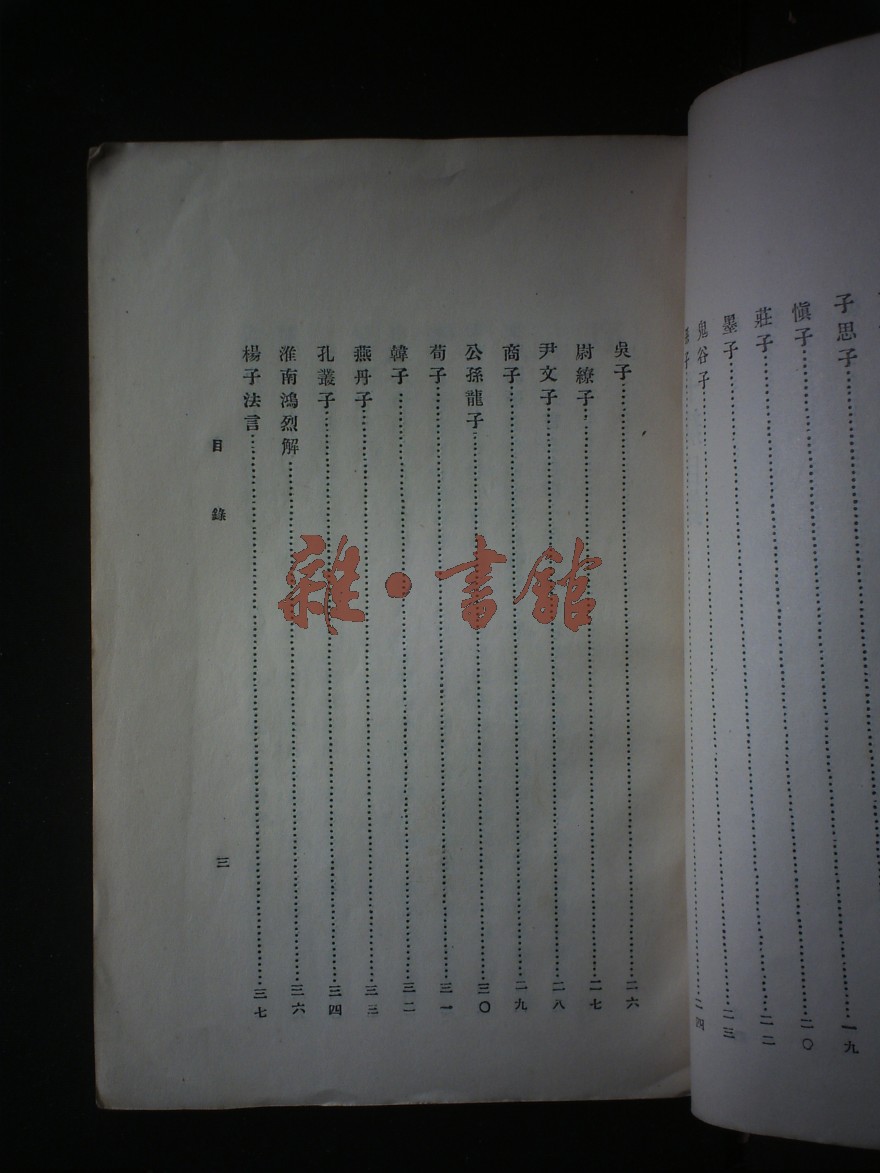 子思子⋯⋯一九
慎子⋯⋯二〇
莊子⋯⋯二二
墨子⋯⋯二三
鬼谷子⋯⋯二四
吳子⋯⋯二六
尉繚子⋯⋯二七
尹文子⋯⋯二八
商子⋯⋯二九
公孫龍子⋯⋯三〇
荀子⋯⋯三一
韓子⋯⋯三二
燕丹子⋯⋯三三
孔叢子⋯⋯三四
淮南鴻烈解⋯⋯三六
楊子法言⋯⋯三七
目錄 三
雜·書館